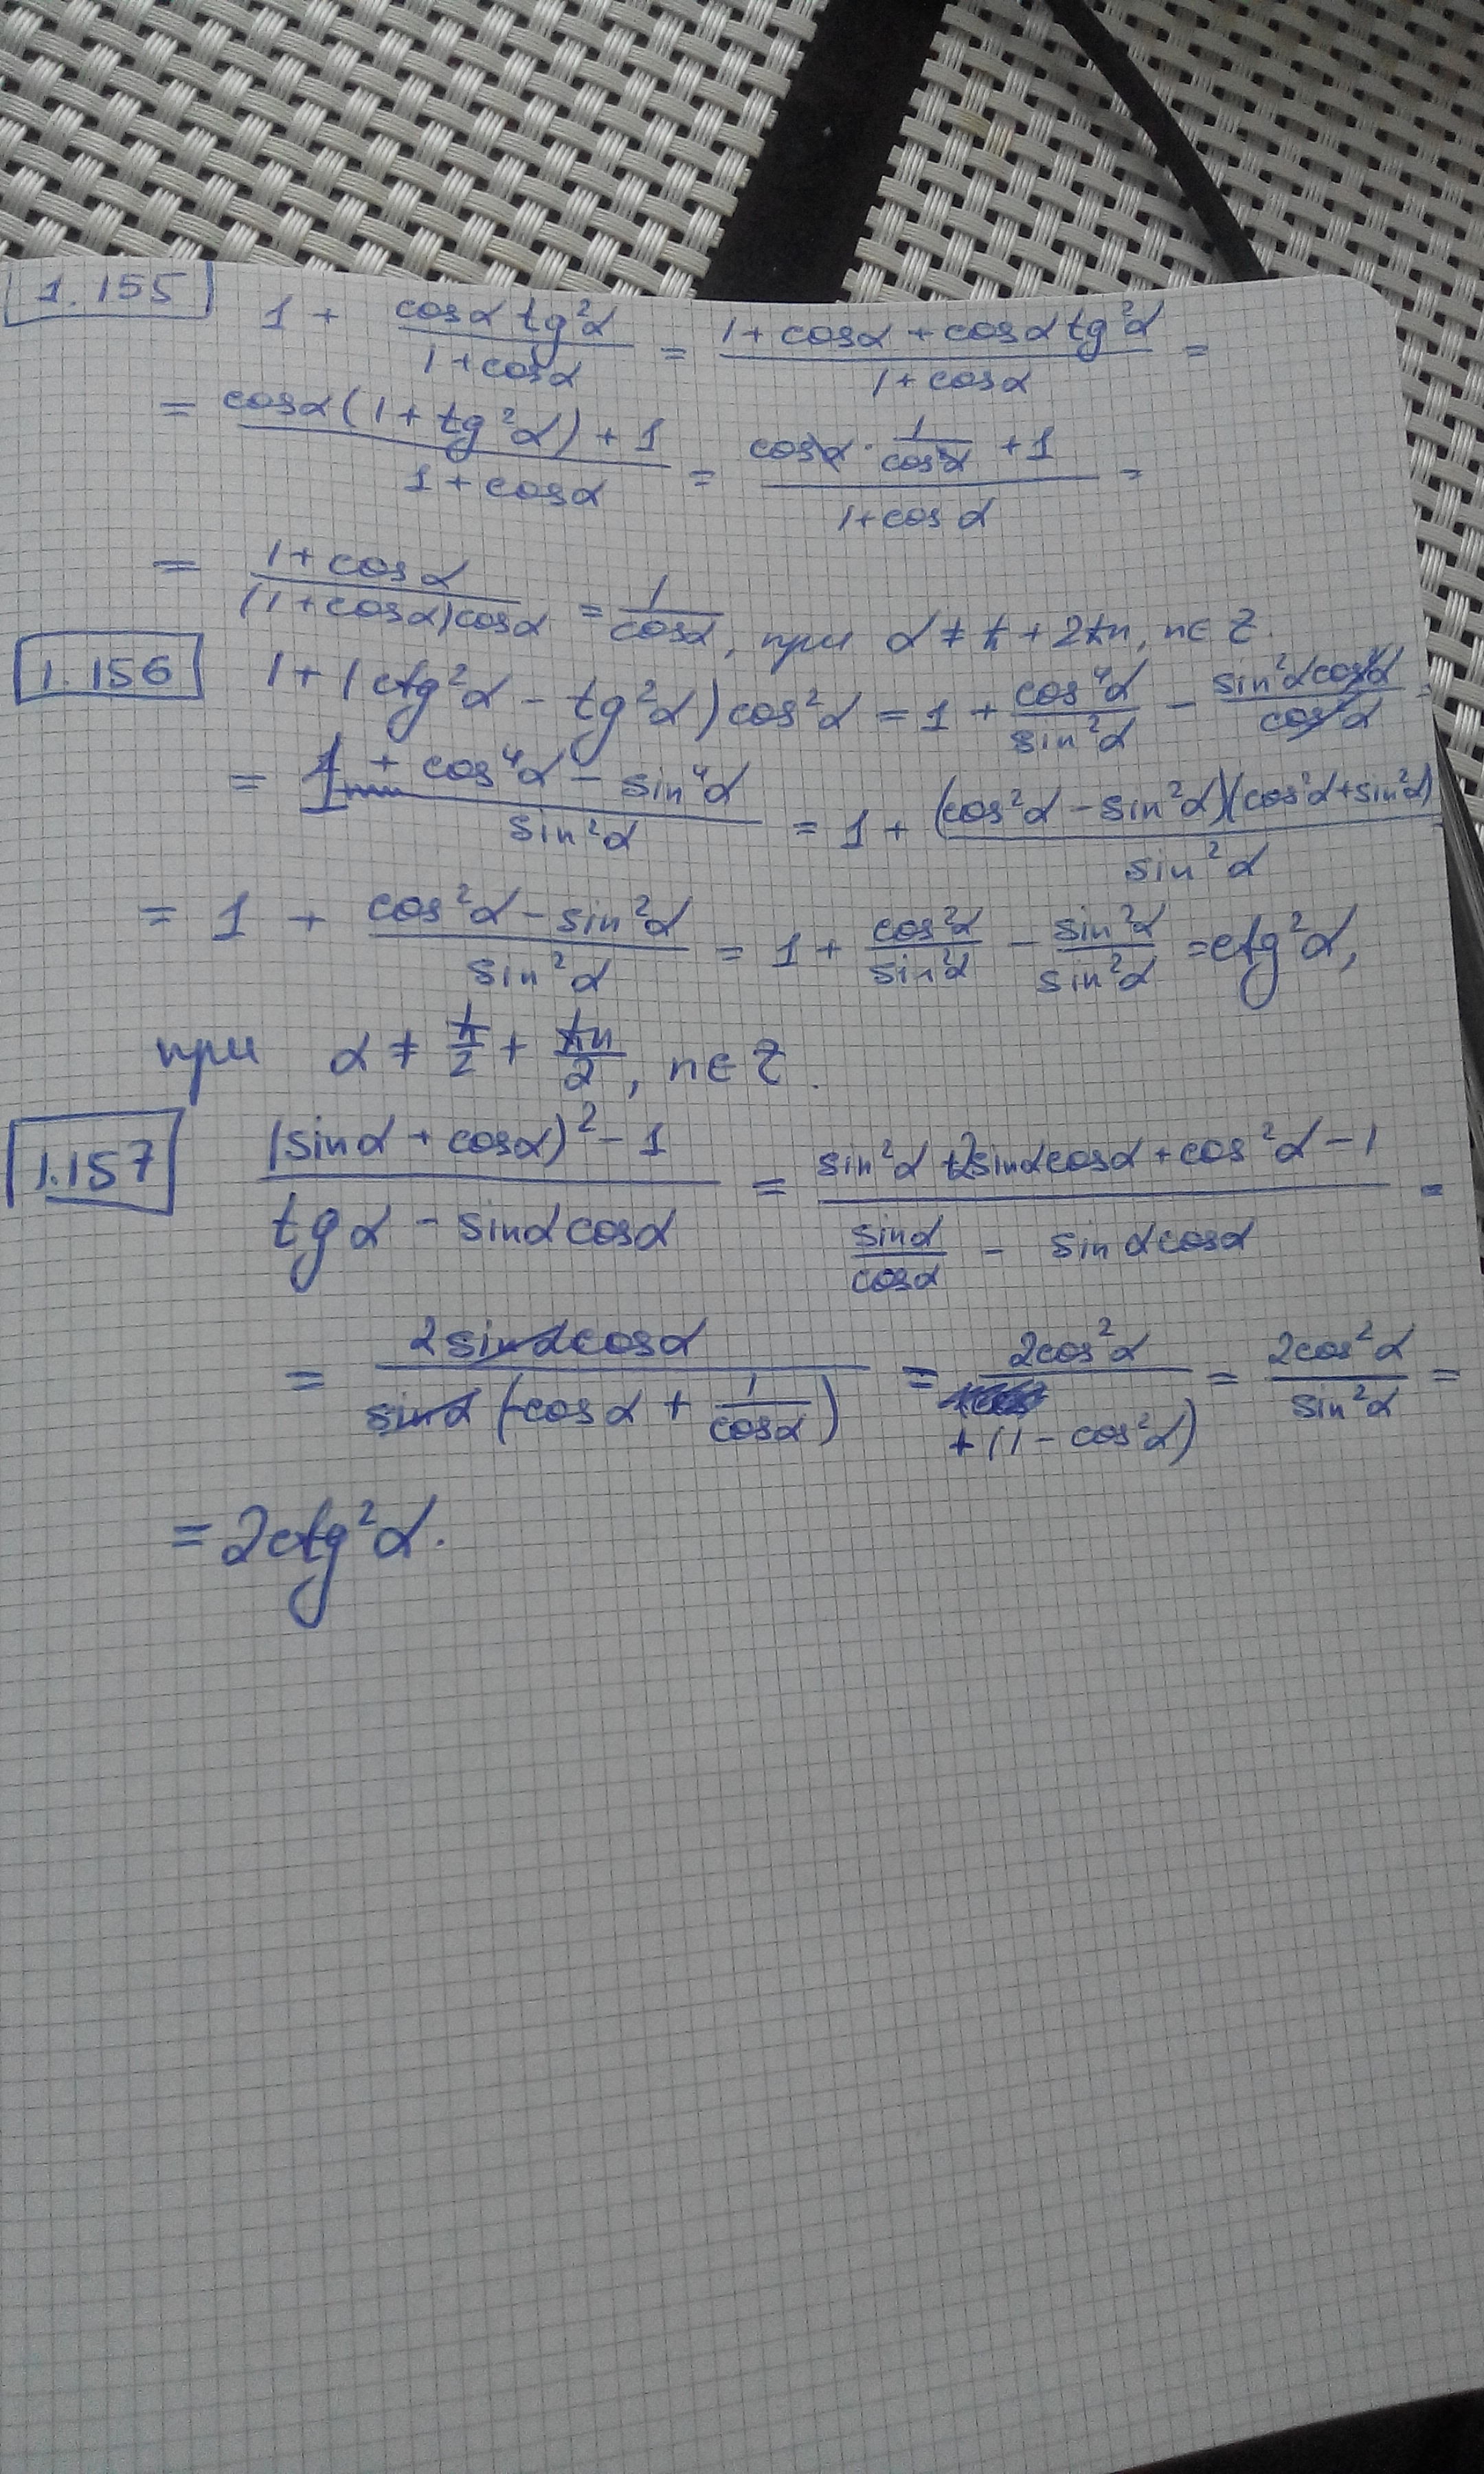 1.155 1 + cosα tg²α / 1+cosα = 1+cosα+cosα tg²α / 1+cosα =
= cosα(1+tg²α)+1 / 1+cosα = cosα · 1/cos²α +1 / 1+cosα =
= 1+cosα / (1+cosα)cosα = 1/cosα, при α ≠ π + 2πn, n∈Z.
1.156 1+(ctg²α - tg²α)cos²α = 1 + cos⁴α/sin²α - sin²αcos²α/cos²α =
= 1 + cos⁴α - sin⁴α / sin²α = 1 + (cos²α - sin²α)(cos²α+sin²α) / sin²α
= 1 + cos²α - sin²α / sin²α = 1 + cos²α/sin²α - sin²α/sin²α = ctg²α,
при α ≠ π/2 + πn/2, n∈Z.
1.157 (sinα + cosα)² - 1 / tgα - sinαcosα = sin²α + 2sinαcosα + cos²α - 1 / sinα/cosα - sinαcosα =
= 2sinαcosα / sinα(-cosα + 1/cosα) = 2cos²α / +(1 - cos²α) = 2cos²α / sin²α =
= 2ctg²α.